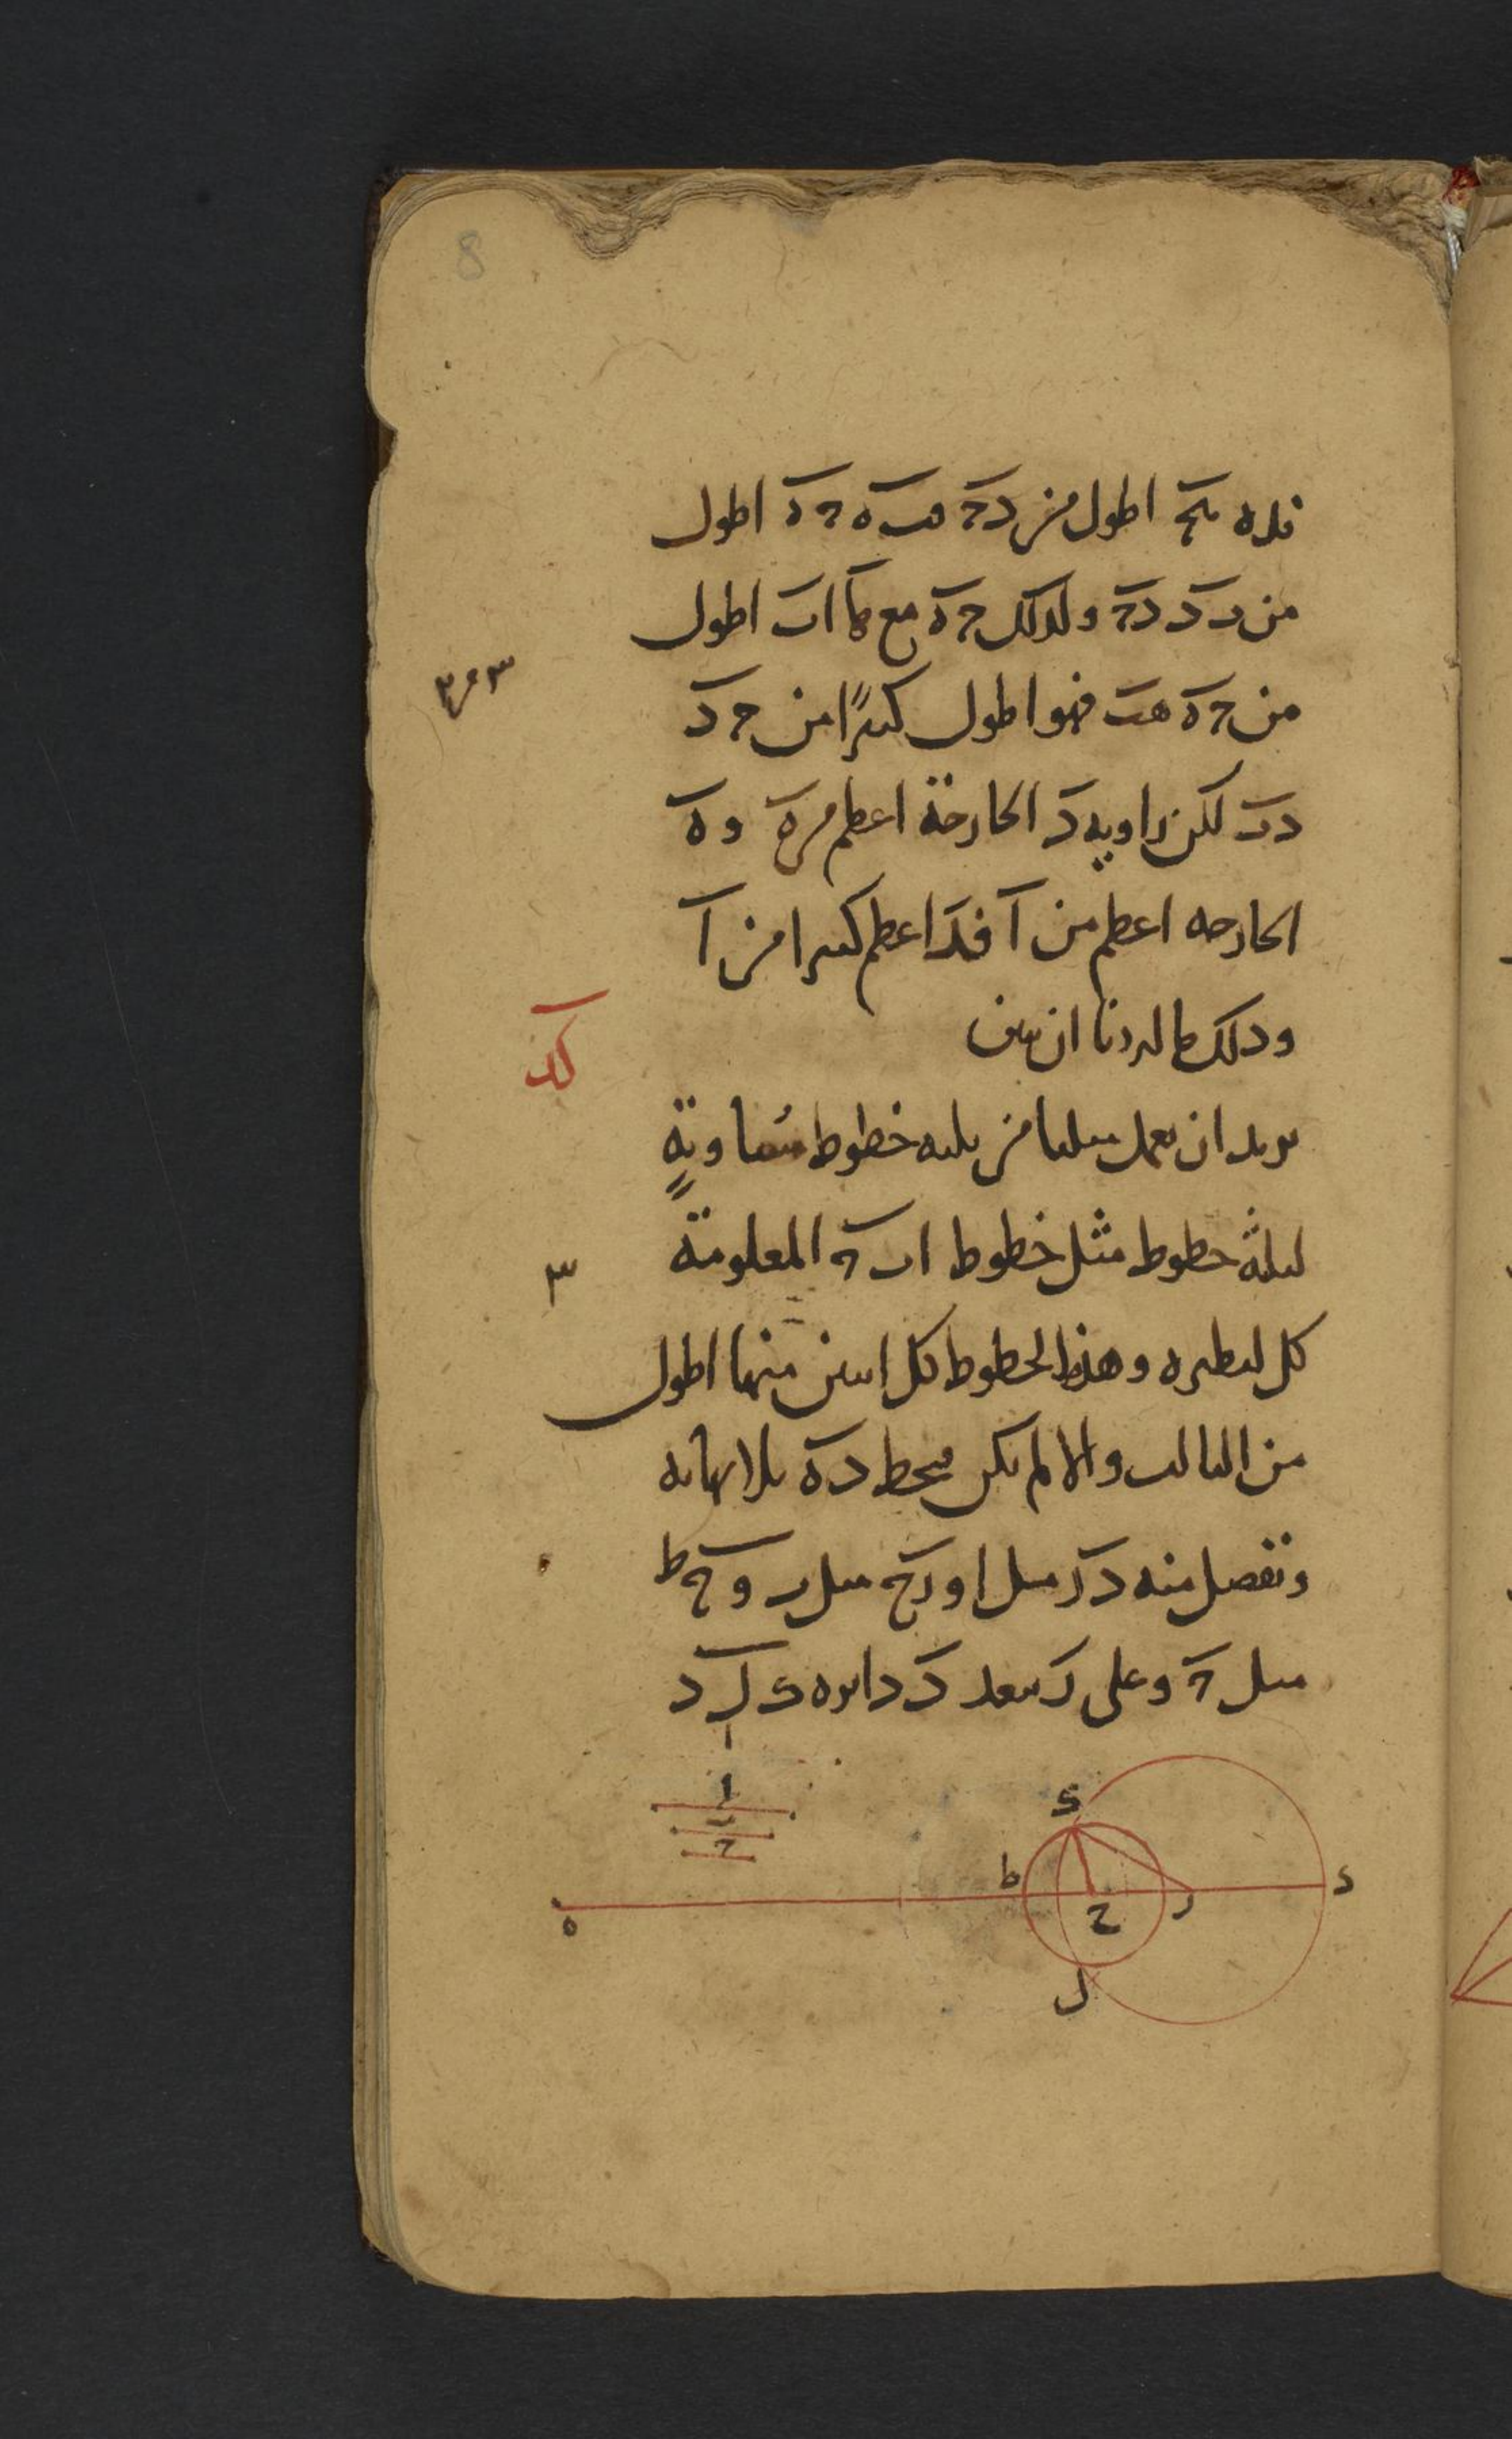 8
فلان هج اطول من دج فب ه ه ج اطول
من ب د د ج ولذلك ج ه مع ها اب اطول
من ج ه هب فهو اطول كثيرًا من ج د
د ب لكن زاوية د الخارجة اعظم من ه و ه
الخارجه اعظم من ا فد اعظم كثيرا من ا
وذلك ما اردنا ان نبين
كد
نريد ان نعمل مثلثا من ثلثه خطوط متساويةٍ
لثلثة خطوط مثل خطوط ا ب ج المعلومة
٣
كل لنظيره وهذه الخطوط كل اثنين منها اطول
من الثالث والا لم يكن فيخط د ه بلا نهايه
ونفصل منه د ز مثل ا و ز ح مثل ب و ح ط
مثل ج وعلى ز ببعد د دائره د ك ل
ا
ب
ج
ك
ط
د
ح
ز
ه
ل